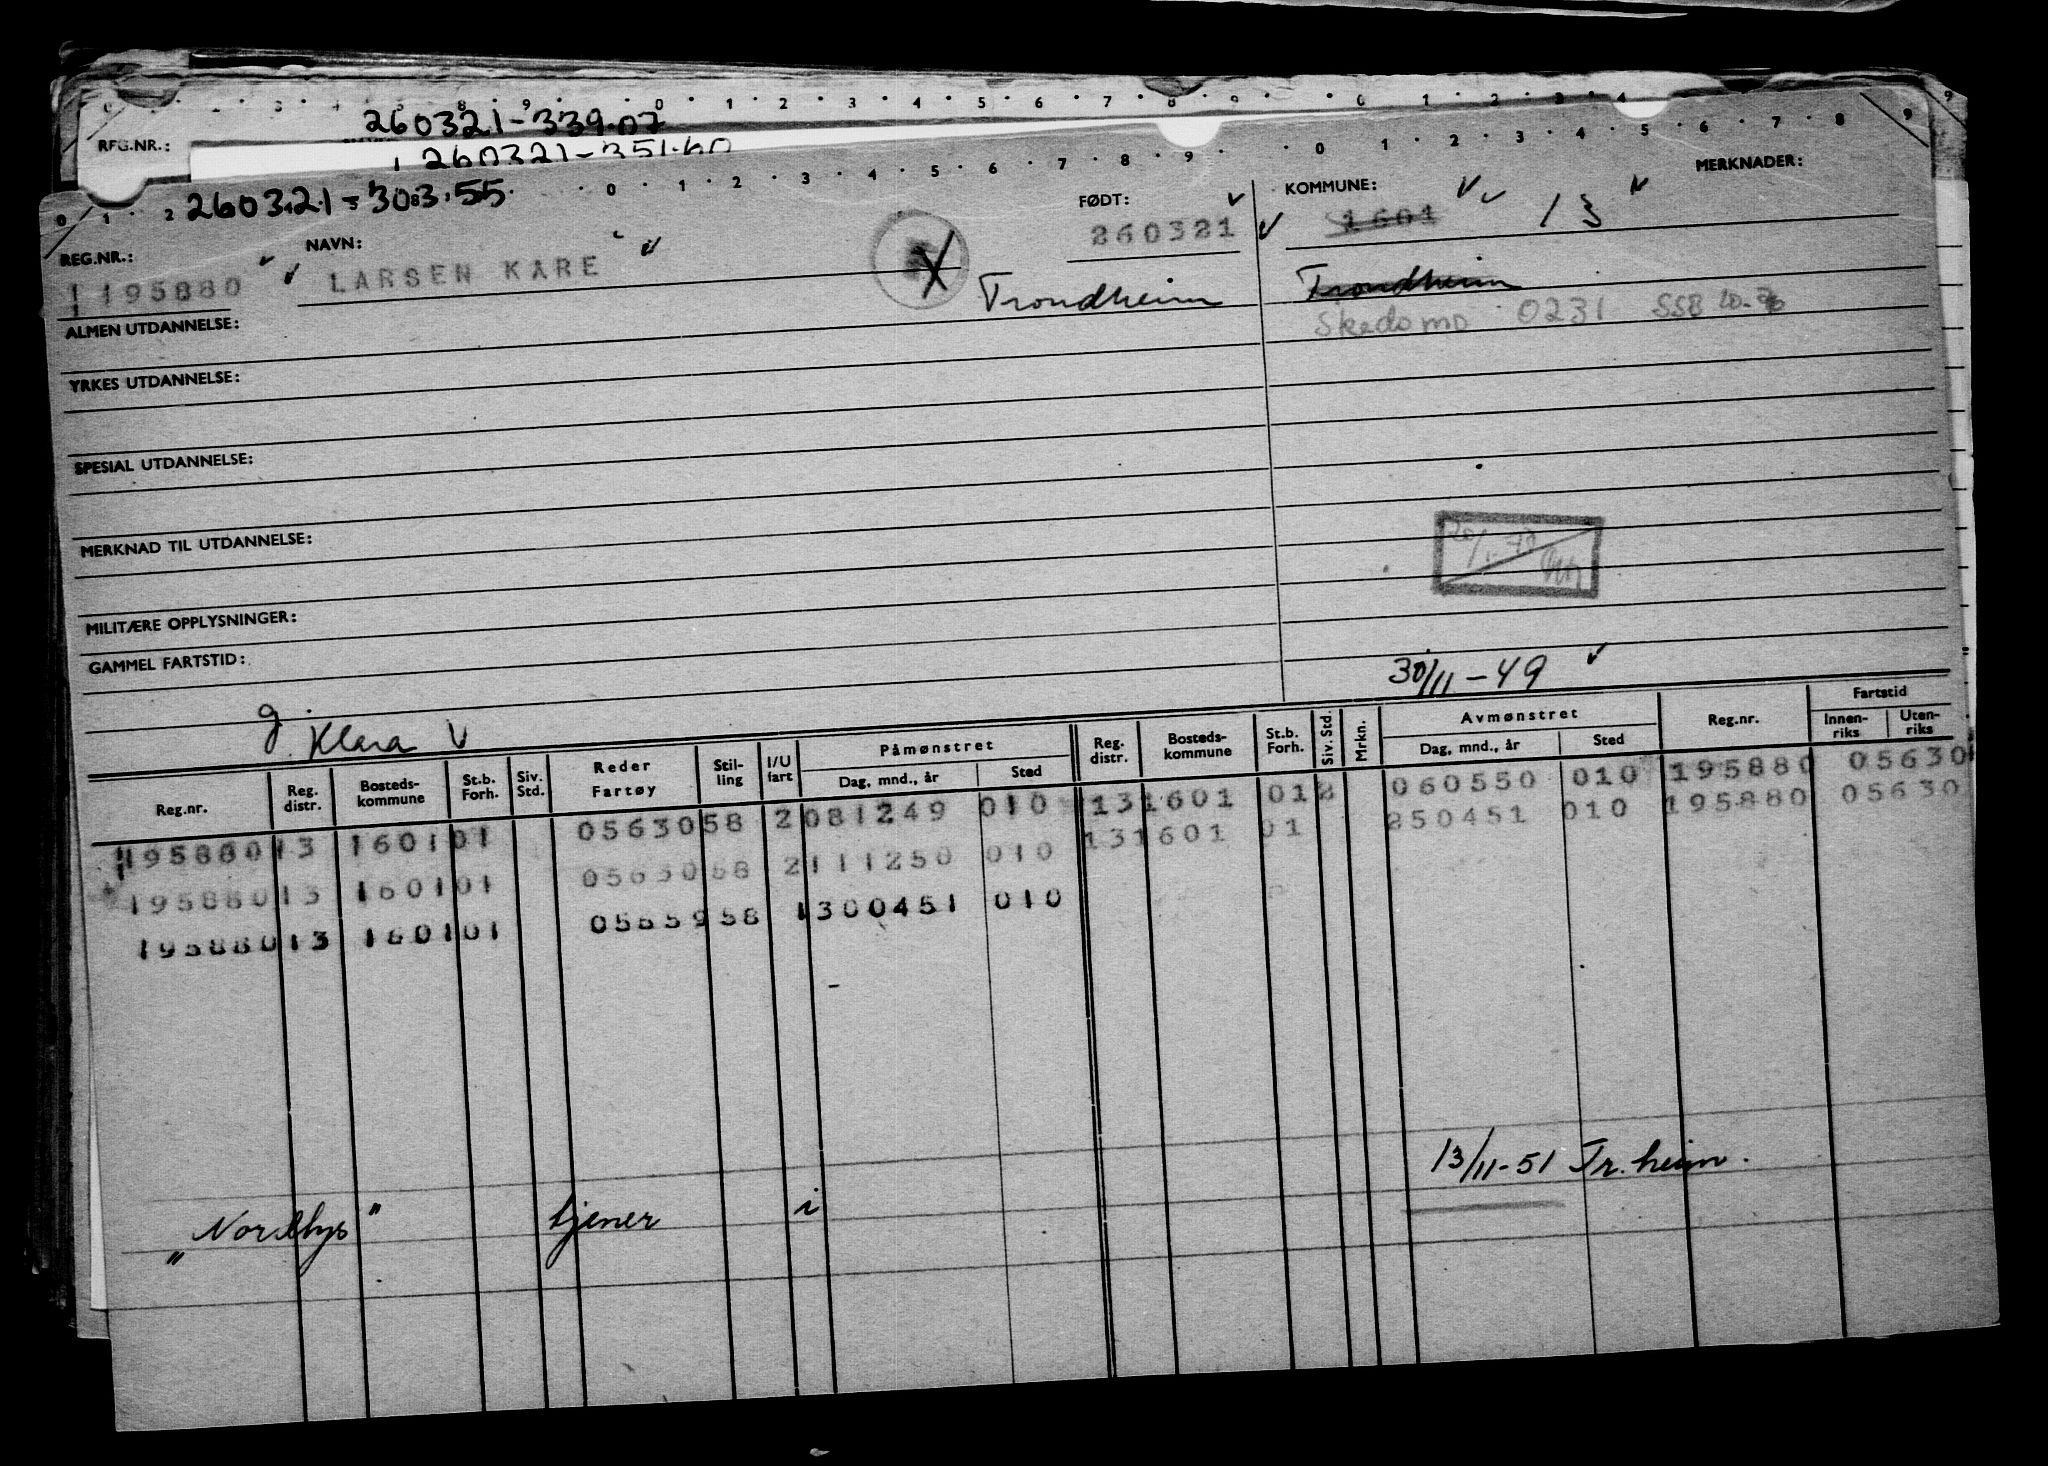 260321-339.07
REG.NR.:
260321-351.60
260321-303.55
MERKNADER:
KOMMUNE:
FØDT:
260321
1601
13
REG.NR.:
NAVN:
195880
LARSEN KÅRE
Trondheim
Trondheim
0231 SSB
ALMEN UTDANNELSE:
YRKES UTDANNELSE:
SPESIAL UTDANNELSE:
MERKNAD TIL UTDANNELSE:
MILITÆRE OPPLYSNINGER:
GAMMEL FARTSTID:
30/11-49
g. Klara V
Reg.nr. Reg. distr. Bosteds-kommune St.b. Forh. Siv. Std. Reder Fartøy Stil-ling I/U fart Påmønstret Dag, mnd., år Sted Reg. distr. Bosteds-kommune St.b. Forh. Siv. Std. Mrkn. Avmønstret Dag, mnd., år Sted Reg.nr. Fartstid Innen-riks Uten-riks
195880 13 1601 01 05630 58 2 081249 010 13 1601 01 2 060550 010 195880 05630
195880 13 1601 01 05630 58 2 111250 010 13 1601 01 250451 010 195880 05630
195880 13 1601 01 05659 58 1 300451 010
13/11-51 Tr.heim.
"Nordlys" tjener i